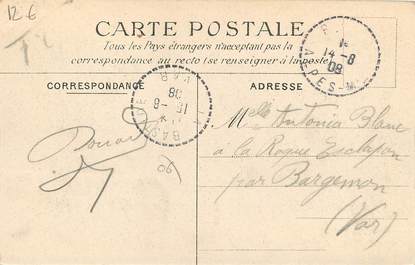 12 €
CARTE POSTALE
Tous les Pays étrangers n'acceptent pas la
correspondance au recto (se renseigner à la poste
CORRESPONDANCE
ADRESSE
14-8
08
ALPES-M
15-8
08
VAR
LA BAS
Melle Antonia Blanc
à la Roque Esclapon
par Bargemon
(Var)